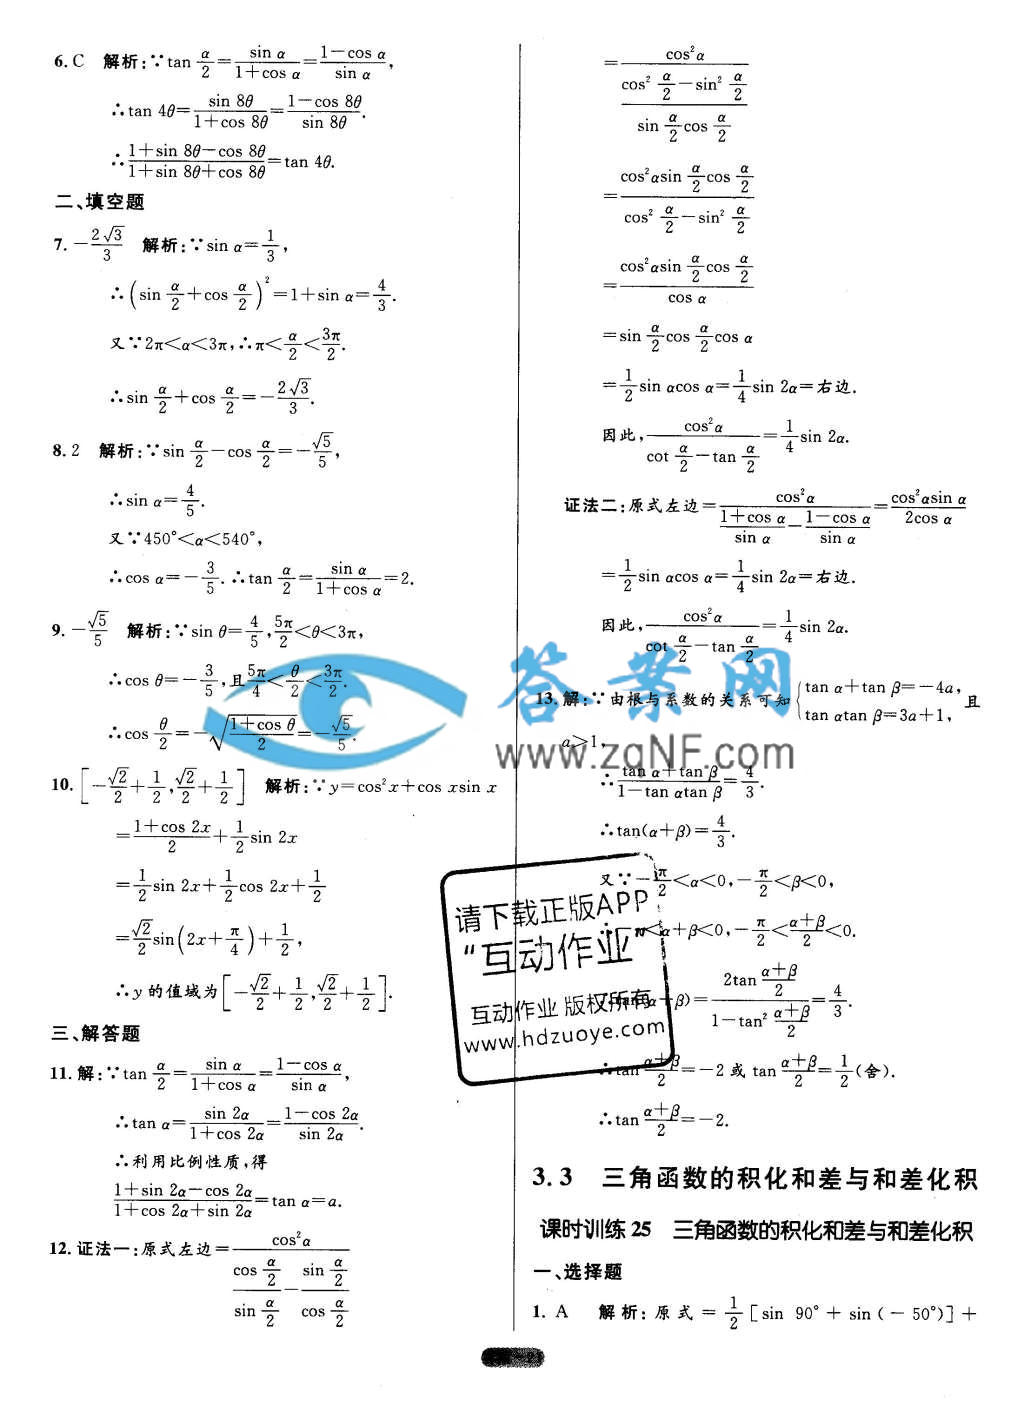 6. C 解析:∵tan α/2=sin α/(1+cos α)=(1-cos α)/sin α,
∴tan 4θ=sin 8θ/(1+cos 8θ)=(1-cos 8θ)/sin 8θ.
∴(1+sin 8θ-cos 8θ)/(1+sin 8θ+cos 8θ)=tan 4θ.
二、填空题
7. -2√3/3 解析:∵sin α=1/3,
∴(sin α/2+cos α/2)²=1+sin α=4/3.
又∵2π<α<3π,∴π<α/2<3π/2.
∴sin α/2+cos α/2=-2√3/3.
8. 2 解析:∵sin α/2-cos α/2=-√5/5,
∴sin α=4/5.
又∵450°<α<540°,
∴cos α=-3/5.∴tan α/2=sin α/(1+cos α)=2.
9. -√5/5 解析:∵sin θ=4/5,5π/2<θ<3π,
∴cos θ=-3/5,且5π/4<θ/2<3π/2.
∴cos θ/2=-√((1+cos θ)/2)=-√5/5.
10. [-√2/2+1/2,√2/2+1/2] 解析:∵y=cos²x+cos xsin x
=(1+cos 2x)/2+1/2sin 2x
=1/2sin 2x+1/2cos 2x+1/2
=√2/2sin(2x+π/4)+1/2,
∴y的值域为[-√2/2+1/2,√2/2+1/2].
三、解答题
11. 解:∵tan α/2=sin α/(1+cos α)=(1-cos α)/sin α,
∴tan α=sin 2α/(1+cos 2α)=(1-cos 2α)/sin 2α.
∴利用比例性质,得
(1+sin 2α-cos 2α)/(1+cos 2α+sin 2α)=tan α=a.
12. 证法一:原式左边=cos²α/((cos α/2)/(sin α/2)-(sin α/2)/(cos α/2))
=cos²α/((cos² α/2-sin² α/2)/(sin α/2cos α/2))
=(cos²αsin α/2cos α/2)/(cos² α/2-sin² α/2)
=(cos²αsin α/2cos α/2)/cos α
=sin α/2cos α/2cos α
=1/2sin αcos α=1/4sin 2α=右边.
因此,cos²α/(cot α/2-tan α/2)=1/4sin 2α.
证法二:原式左边=cos²α/((1+cos α)/sin α-(1-cos α)/sin α)=cos²αsin α/2cos α
=1/2sin αcos α=1/4sin 2α=右边.
因此,cos²α/(cot α/2-tan α/2)=1/4sin 2α.
答案网
13. 解:∵由根与系数的关系可知{tan α+tan β=-4a, tan αtan β=3a+1, 且
a>1,
www.zqNF.com
∴(tan α+tan β)/(1-tan αtan β)=4/3.
∴tan(α+β)=4/3.
又∵-π/2<α<0,-π/2<β<0,
∴-π<α+β<0,-π/2<(α+β)/2<0.
∵tan(α+β)=(2tan (α+β)/2)/(1-tan² (α+β)/2)=4/3.
∴tan (α+β)/2=-2或tan (α+β)/2=1/2(舍).
∴tan (α+β)/2=-2.
请下载正版APP
“互动作业”
互动作业 版权所有
www.hdzuoye.com
3.3 三角函数的积化和差与和差化积
课时训练25 三角函数的积化和差与和差化积
一、选择题
1. A 解析:原式=1/2[sin 90°+sin(-50°)]+